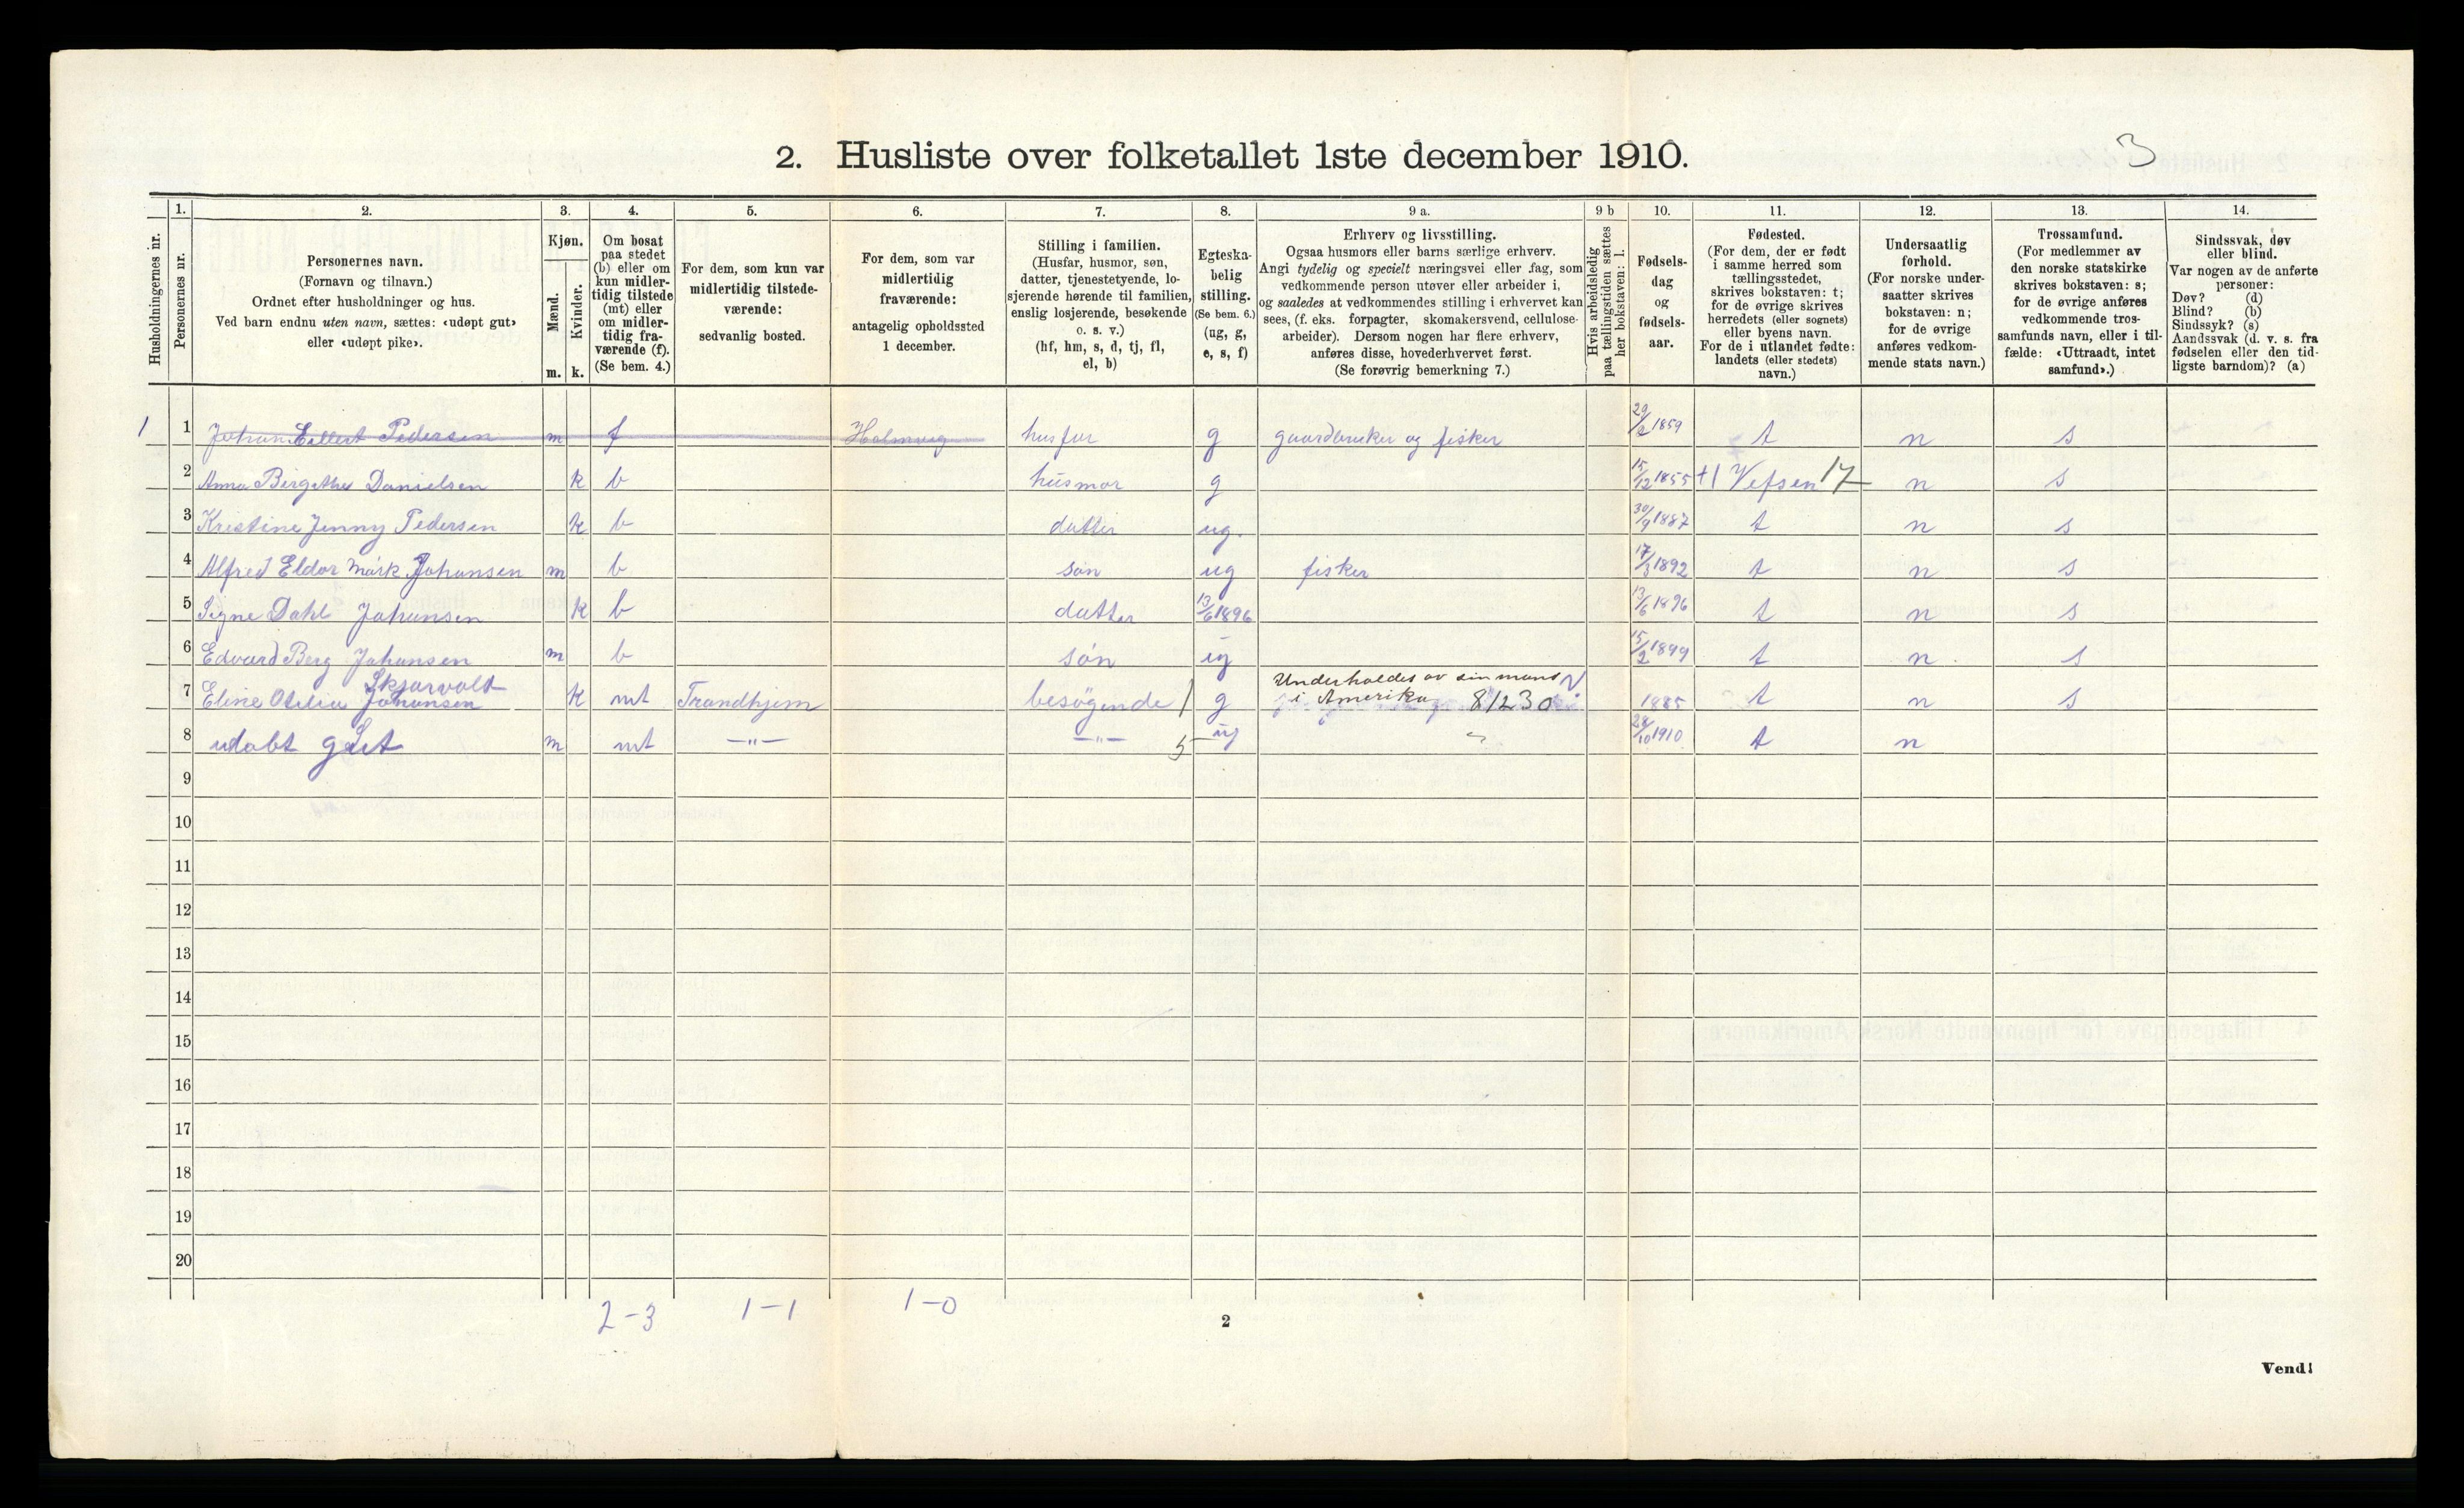 2. Husliste over folketallet 1ste december 1910.
3
Husholdningernes nr.
1.
Personernes nr.
2.
Personernes navn.
(Fornavn og tilnavn.)
Ordnet efter husholdninger og hus.
Ved barn endnu uten navn, sættes: «udøpt gut»
eller «udøpt pike».
3.
Kjøn.
Mænd.
Kvinder.
m. k.
4.
Om bosat
paa stedet
(b) eller om
kun midler-
tidig tilstede
(mt) eller
om midler-
tidig fra-
værende (f).
(Se bem. 4.)
5.
For dem, som kun var
midlertidig tilstede-
værende:
sedvanlig bosted.
6.
For dem, som var
midlertidig
fraværende:
antagelig opholdssted
1 december.
7.
Stilling i familien.
(Husfar, husmor, søn,
datter, tjenestetyende, lo-
sjerende hørende til familien,
enslig losjerende, besøkende
o. s. v.)
(hf, hm, s, d, tj, fl,
el, b)
8.
Egteska-
belig
stilling.
(Se bem. 6.)
(ug, g,
e, s, f)
9 a.
Erhverv og livsstilling.
Ogsaa husmors eller barns særlige erhverv.
Angi tydelig og specielt næringsvei eller fag, som
vedkommende person utøver eller arbeider i,
og saaledes at vedkommendes stilling i erhvervet kan
sees, (f. eks. forpagter, skomakersvend, cellulose-
arbeider). Dersom nogen har flere erhverv,
anføres disse, hovederhvervet først.
(Se forøvrig bemerkning 7.)
9 b
Hvis arbeidsledig
paa tællingstiden sættes
her bokstaven: l.
10.
Fødsels-
dag
og
fødsels-
aar.
11.
Fødested.
(For dem, der er født
i samme herred som
tællingsstedet,
skrives bokstaven: t;
for de øvrige skrives
herredets (eller sognets)
eller byens navn.
For de i utlandet fødte:
landets (eller stedets)
navn.)
12.
Undersaatlig
forhold.
(For norske under-
saatter skrives
bokstaven: n;
for de øvrige
anføres vedkom-
mende stats navn.)
13.
Trossamfund.
(For medlemmer av
den norske statskirke
skrives bokstaven: s;
for de øvrige anføres
vedkommende tros-
samfunds navn, eller i til-
fælde: «Uttraadt, intet
samfund».)
14.
Sindssvak, døv
eller blind.
Var nogen av de anførte
personer:
Døv? (d)
Blind? (b)
Sindssyk? (s)
Aandssvak (d. v. s. fra
fødselen eller den tid-
ligste barndom)? (a)
1 1 Johan Ellert Pedersen m f husfar g gaardbruker og fisker 1859 t n s
2 Anna Bergethe Danielsen k b husmor g 15/12 1855 +1 Vefsen 17 n s
3 Kristine Jenny Pedersen k b datter ug. 30/9 1887 t n s
4 Alfred Eldor Mørk Johansen m b søn ug fisker 17/3 1892 t n s
5 Signe Dahl Johansen k b datter 13/6 1896 13/6 1896 t n s
6 Edvard Berg Johansen m b søn ug 15/2 1899 t n s
7 Eline Otelia Johansen k mt Trondhjem besøgende g Underholdes av sin mand i Amerika 81230 1885 t n s
8 udøbt gut m mt —"— —"— 5 ug 28/10 1910 t n
9
10
11
12
13
14
15
16
17
18
19
20
2-3 1-1 1-0
2
Vend!